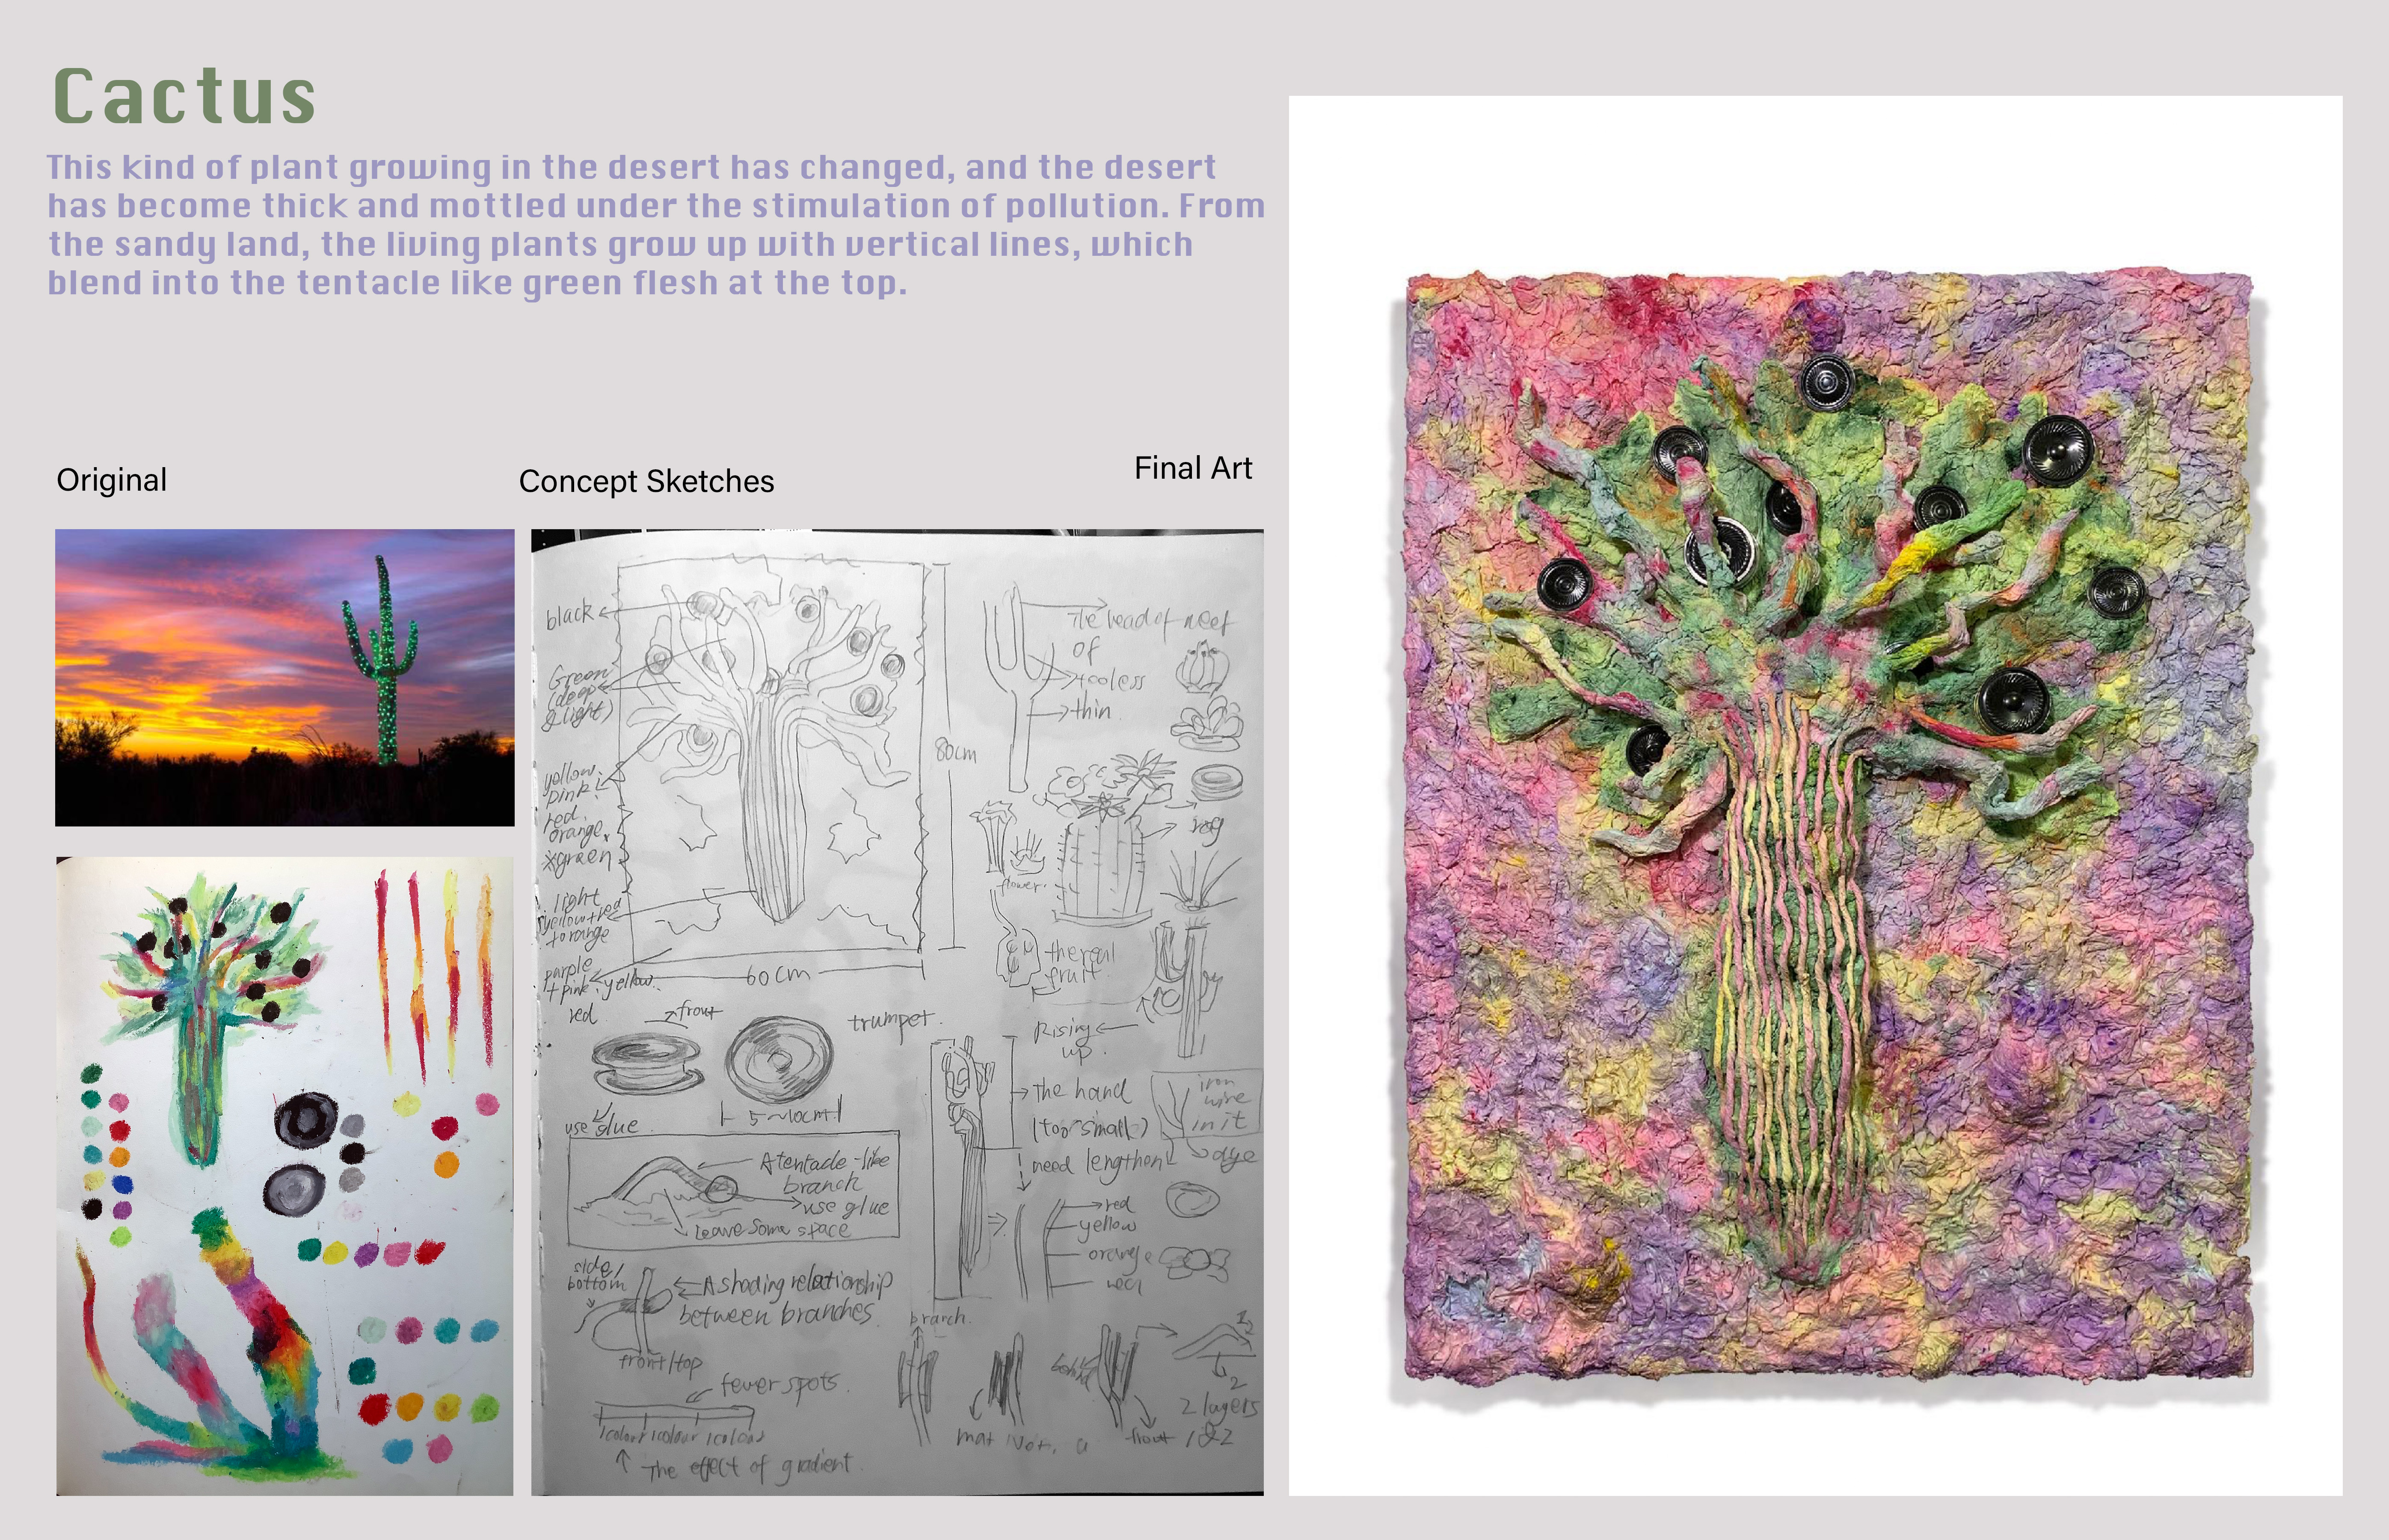 Cactus
This kind of plant growing in the desert has changed, and the desert
has become thick and mottled under the stimulation of pollution. From
the sandy land, the living plants grow up with vertical lines, which
blend into the tentacle like green flesh at the top.
Original
Concept Sketches
Final Art
black
Green
(deep
& light)
yellow.
pink.
red.
orange.
green
light
yellow+red
to orange
purple
+pink.yellow.
red
80cm
60cm
of
thin
flower.
fruit
front
trumpet.
5~10cm
use glue
A tentacle-like
branch
use glue
Leave some space
side/
bottom
A shading relationship
between branches.
front/top
fever spots.
1colour 1colour 1colour
The effect of gradient.
Rising
up.
The hand
(too small)
need lengthen
iron
wire
in it
dye
red
yellow
orange
red
branch.
behind
front
2
2 layers
1&2